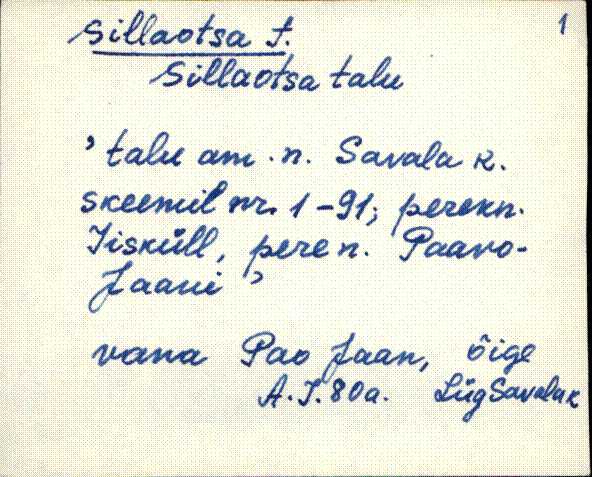 1
Sillaotsa t.
Sillaotsa talu
’talu am. n. Savala k.
skeemil nr. 1-91; perekn.
Iisküll, pere n. Paavo-
Jaani’
vana Pao Jaan, õige
A.I. 80a. LügSavalak